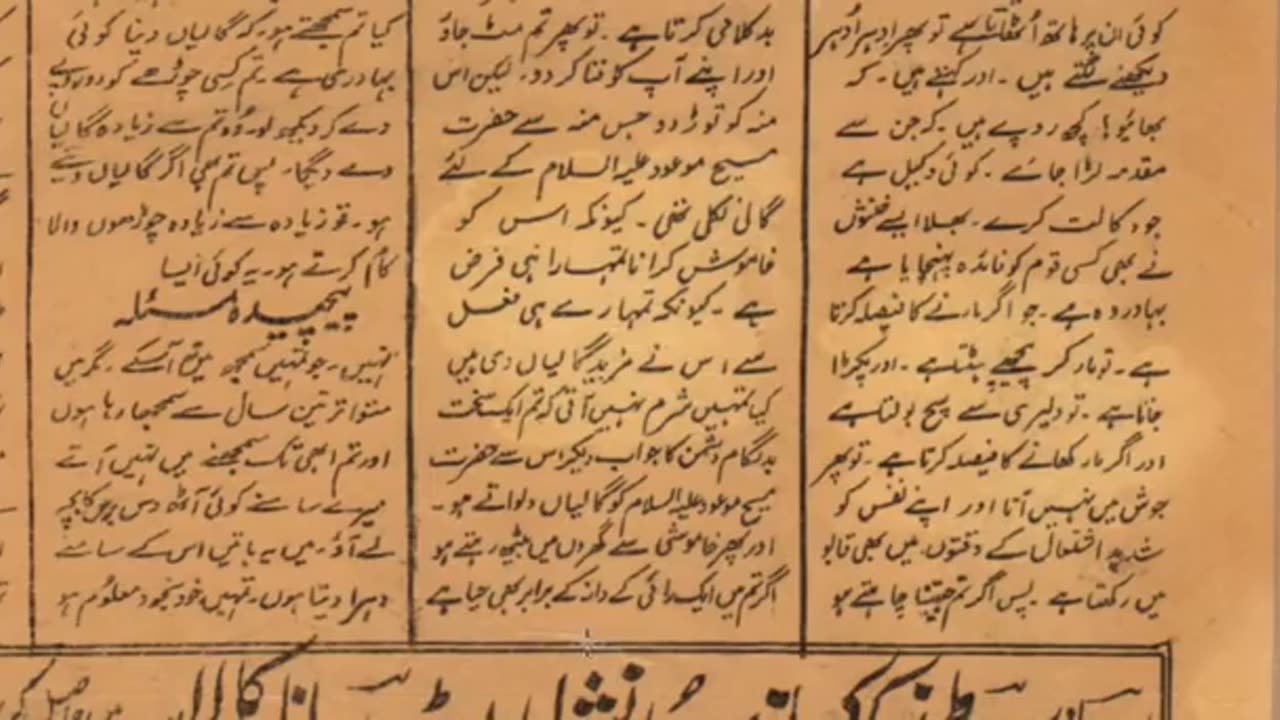 کوئی ان پر ہاتھ اُٹھاتا ہے تو پھر ادہر اُدہر
دیکھنے لگتے ہیں ۔ اور کہتے ہیں ۔ کہ
بھائیو ! کچھ روپے ہیں ۔ کہ جن سے
مقدمہ لڑا جائے ۔ کوئی وکیل ہے
جو وکالت کرے ۔ بھلا ایسے
نے بھی کسی قوم کو فائدہ پہنچایا ہے
بہادر وہ ہے ۔ جو اگر مارنے کا فیصلہ کرتا
ہے ۔ تو مار کر پیچھے ہٹتا ہے ۔ اور پکڑا
جاتا ہے ۔ تو دلیری سے سچ بولتا ہے
اور اگر مار کھانے کا فیصلہ کرتا ہے ۔ تو پھر
جوش میں نہیں آتا اور اپنے نفس کو
شدید اشتعال کے وقتوں میں بھی قابو
میں رکھتا ہے ۔ پس اگر تم جیتنا چاہتے ہو
بد کلامی کرتا ہے ۔ تو پھر تم مٹ جاؤ
اور اپنے آپ کو فنا کر دو ۔ لیکن اس
منہ کو توڑ دو جس منہ سے حضرت
مسیح موعود علیہ السلام کے لئے
گالی نکلی تھی ۔ کیونکہ اس کو
خاموش کرانا تمہارا ہی فرض
ہے ۔ کیونکہ تمہارے ہی فعل
سے اس نے مزید گالیاں دی ہیں
کیا تمہیں شرم نہیں آتی کہ تم ایک سخت
بدلگام دشمن کا جواب دیکر اس سے حضرت
مسیح موعود علیہ السلام کو گالیاں دلواتے ہو ۔
اور پھر خاموشی سے گھروں میں بیٹھ رہتے ہو
اگر تم میں ایک رائی کے دانہ کے برابر بھی حیا ہے
کیا تم سمجھتے ہو ۔ کہ گالیاں دینا کوئی
بہادری ہے ۔ تم کسی چوڑھے کو دو روپے
دے کر دیکھ لو ۔ وُہ تم سے زیادہ گالیاں
دے دیگا ۔ پس تم بھی اگر گالیاں دیتے
ہو ۔ تو زیادہ سے زیادہ چوڑھوں والا
کام کرتے ہو ۔ یہ کوئی ایسا
پیچیدہ مسئلہ
نہیں ۔ جو تمہیں سمجھ نہ آ سکے ۔ مگر میں
متواتر تین سال سے سمجھا رہا ہوں
اور تم ابھی تک سمجھنے میں نہیں آتے
میرے سامنے کوئی آٹھ دس برس کا بچہ
لے آؤ ۔ میں یہ باتیں اس کے سامنے
دہرا دیتا ہوں ۔ تمہیں خود بخود معلوم ہو